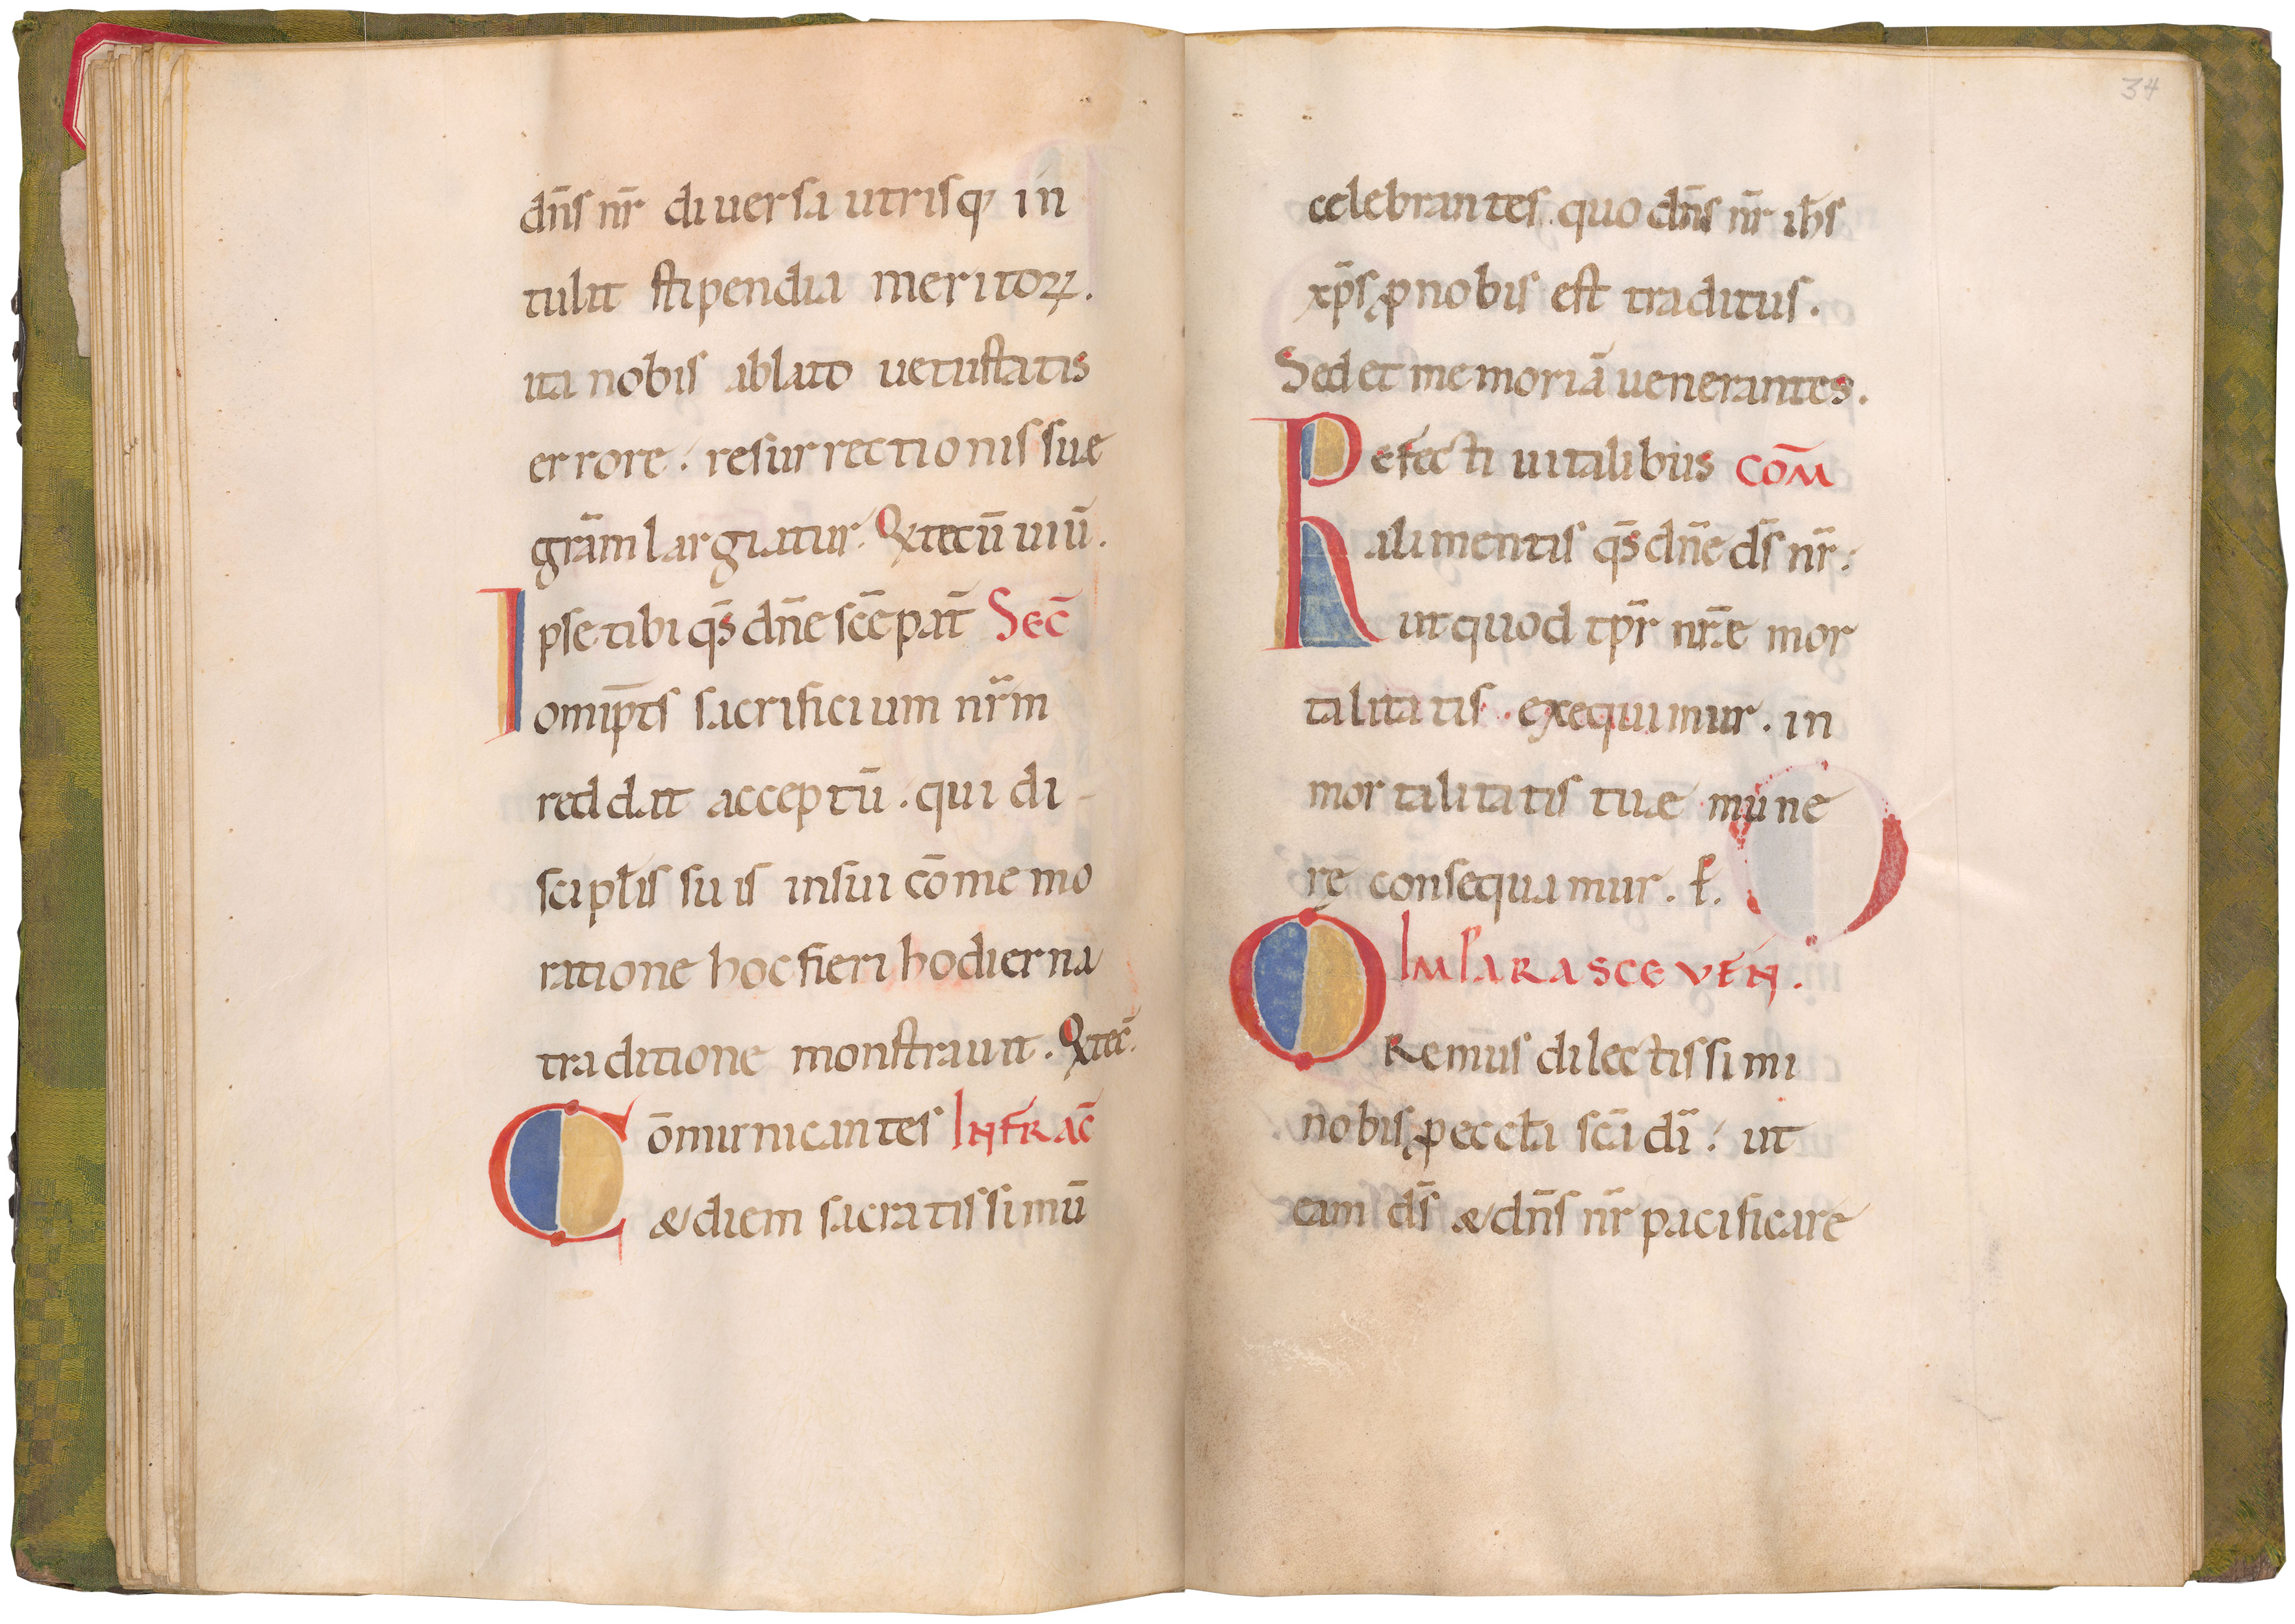 dn̄s nr̄ diuersa utrisq; in
tulit stipendia meritoꝝ.
ita nobis ablato uetustatis
errore. resurrectionis sue
grā̄m largiatur. Q tecū uiū.
Ipse tibi qs̄ dn̄e scē pat̄ Sec̄
omīpt̄s sacrificium nr̄m
reddat acceptū. qui di-
scipl̄is suis insui cōmemo
ratione hoc fieri hodierna
traditione monstrauit. Q tec̄.
Cōmunicantes Infrac̄
& diem sacratissimū
34
celebrantes. quo dn̄s nr̄ ih̄s
xp̄s ꝓ nobis est traditus.
Sed et memoriā uenerantes.
Refecti uitalibus com̄
alimentis qs̄ dn̄e ds̄ nr̄.
ut quod tp̄r nr̄ẹ mor
talitatis. exequimur. in
mortalitatis tuæ mune
rę consequamur. ꝑ.
In Parasceuen.
Oremus dilectissimi
nobis ꝓ eccł̄a scā di̅. ut
eam ds̄ & dn̄s nr̄ pacificare